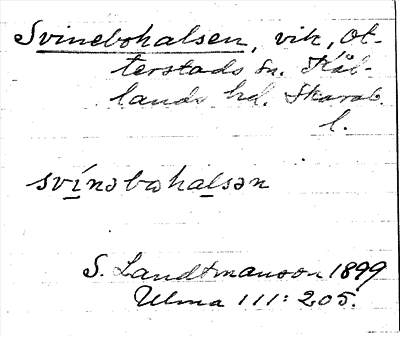 Svinebohalsen, vik, Ot-
terstads sn. Kål-
lands hd. Skarab.
l.
svínəbωhalsən
S. Landtmanson 1899
Ulma 111:205.